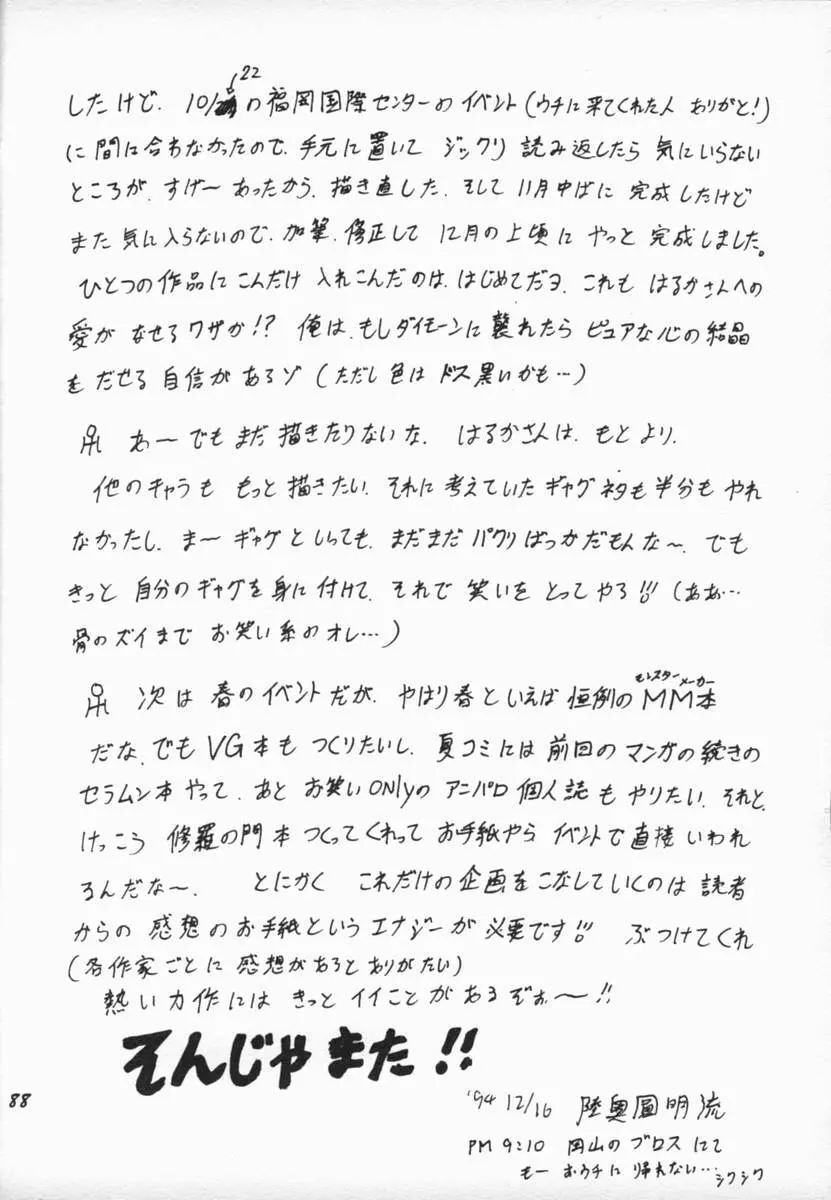 22
したけど、10/ の福岡国際センターのイベント(ウチに来てくれた人 ありがと!)
に間に合わなかったので、手元に置いて ジックリ 読み返したら 気にいらない
ところが、すげー あったから、描き直した、そして 11月中ばに 完成したけど
また 気に入らないので、加筆、修正して 12月の上頃に やっと 完成しました。
ひとつの作品に こんだけ 入れこんだのは、はじめてだヨ、これも はるかさんへの
愛が なせるワザか!? 俺は、もしダイモーンに襲れたら ピュアな心の結晶
を だせる 自信があるゾ (ただし色は ドス黒いかも…)
あーでもまだ 描きたりないな、はるかさんは、もとより、
他のキャラも もっと描きたい、それに 考えていた ギャグネタも 半分も やれ
なかったし、まー ギャグと いっても、まだまだ パクリばっかだもんな〜、でも
きっと 自分のギャグを 身に付けて、それで 笑いを とってやる!! (ああ…
骨のズイまで お笑い系のオレ…)
モンスターメーカー
次は 春のイベントだが、やはり春といえば 恒例の MM本
だな、でも VG本も つくりたいし、夏コミには 前回の マンガの続きの
セラムン本 やって、あと お笑いonlyの アニパロ 個人誌も やりたい、それと、
けっこう 修羅の門本 つくってくれって お手紙やら イベントで 直接 いわれ
るんだな〜、 とにかく これだけの企画を こなしていくのは 読者
からの 感想の お手紙という エナジーが 必要です!! ぶつけてくれ
(各作家ごとに 感想があるとありがたい)
熱い力作には きっと イイことが あるぞぉ〜!!
そんじゃ また!!
88
'94 12/16 陸奥圓明流
PM 9:10 岡山のブロスにて
もー おウチに 帰れない… シクシク